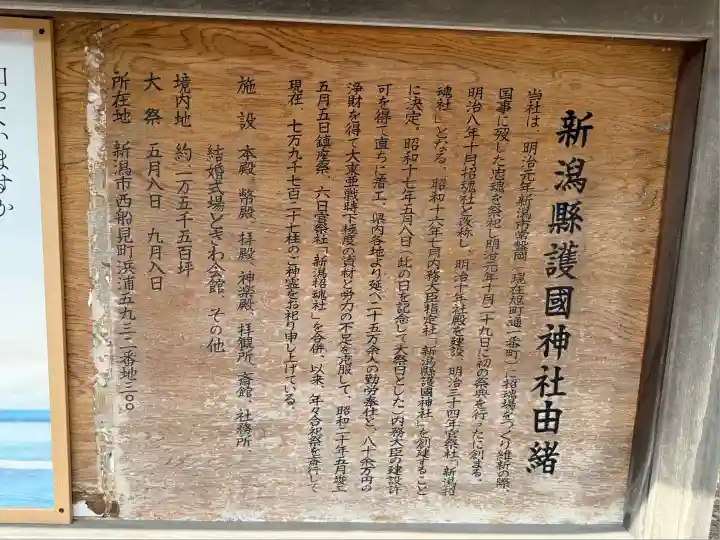 新潟縣護國神社由緒
当社は、明治元年新潟市常盤岡(現在旭町通一番町)に招魂場をつくり維新の際、
国事に歿した忠魂を祭祀し明治元年十月二十九日に初の祭典を行ったに創まる。
明治八年十月招魂社と改称し、明治十年社殿を建設、明治三十四年官祭社「新潟招
魂社」となる。昭和十六年七月内務大臣指定社「新潟縣護國神社」を創建すること
に決定。昭和十七年五月八日(此の日を記念して大祭日とした)内務大臣の建設許
可を得て直ちに着工。県内各地より延べ二十五万余人の勤労奉仕と、八十余万円の
浄財を得て大東亜戦時下極度の資材と労力の不足を克服して、昭和二十年五月竣工
五月五日鎮座祭、六日官祭社「新潟招魂社」を合併、以来、年々合祀祭を斎行して
現在、七万九千七百二十七柱のご神霊をお祀り申し上げている。
施設 本殿、幣殿、拝殿、神楽殿、拝観所、斎館、社務所、
結婚式場ときわ会館、その他
境内地 約一万五千五百坪
大祭 五月八日、九月八日
所在地 新潟市西船見町浜浦五九三二番地三〇〇
ますか